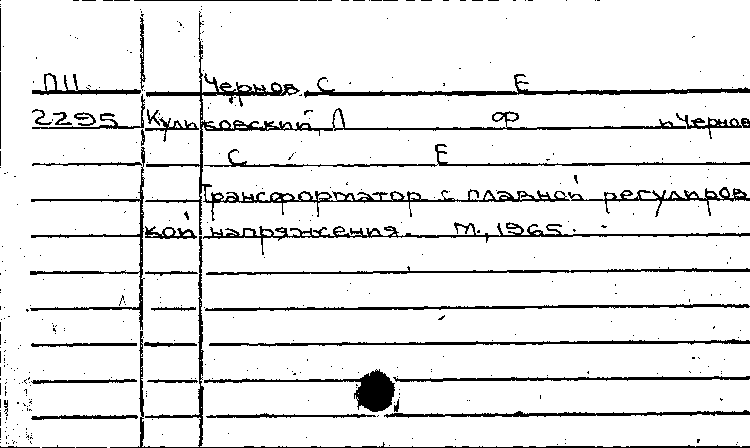 П11 Чернов, С Е
2295 Куликовский, Л Ф и Чернов
С Е
Трансфортатор с плавной регулиров
кой напряжения. М., 1965.